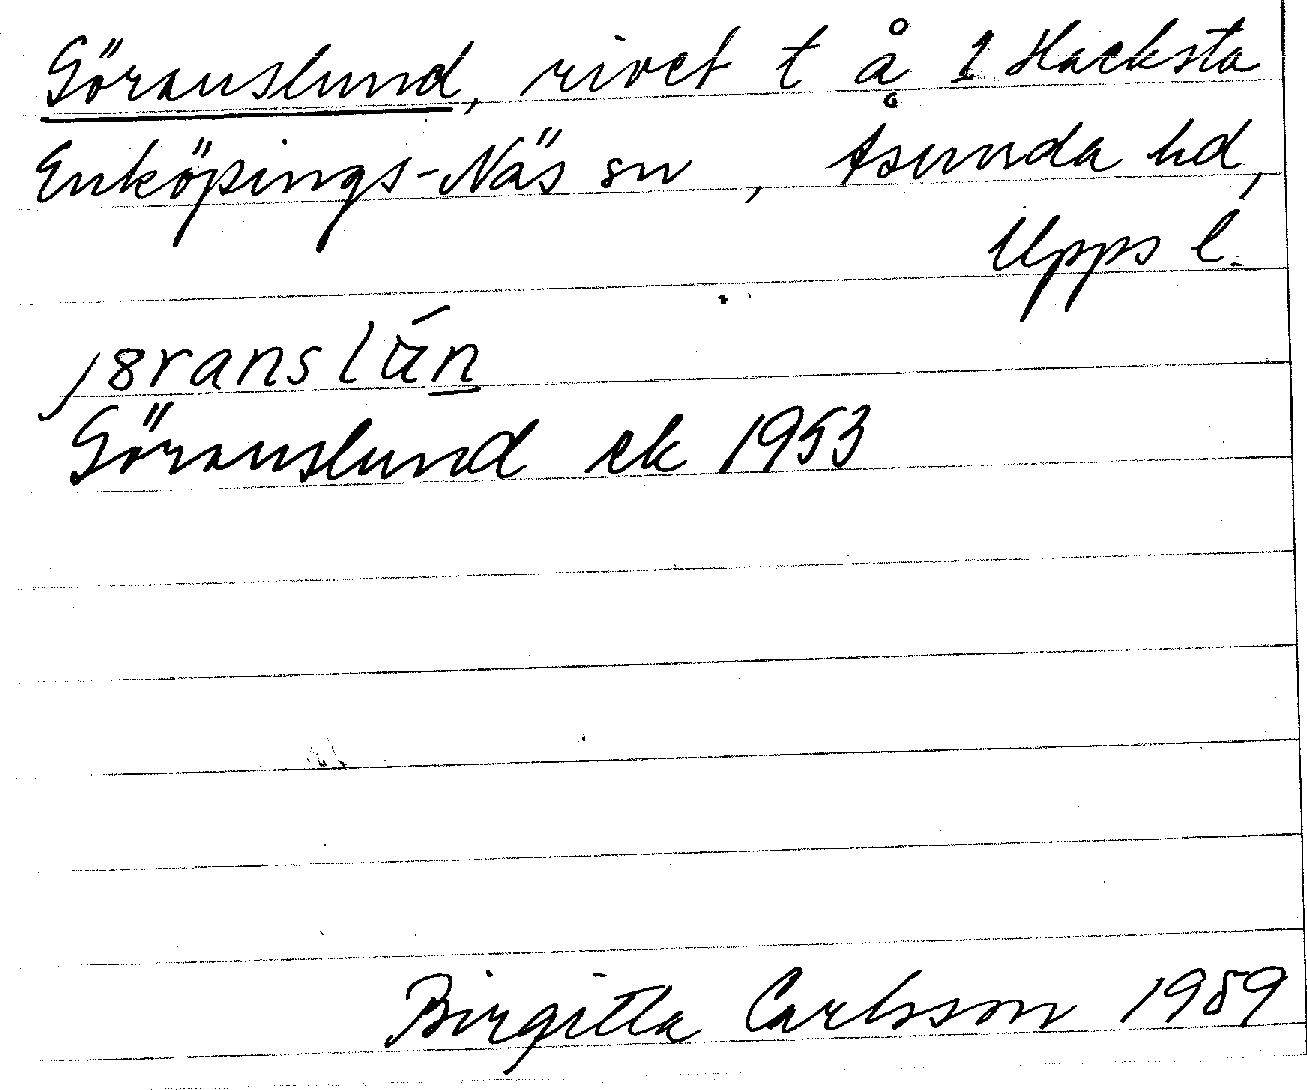 Göranslund, rivet t å 1 Hacksta
Enköpings-Näs sn, Åsunda hd,
Upps l.
j8ranslún
Göranslund ek 1953
Birgitta Carlsson 1989